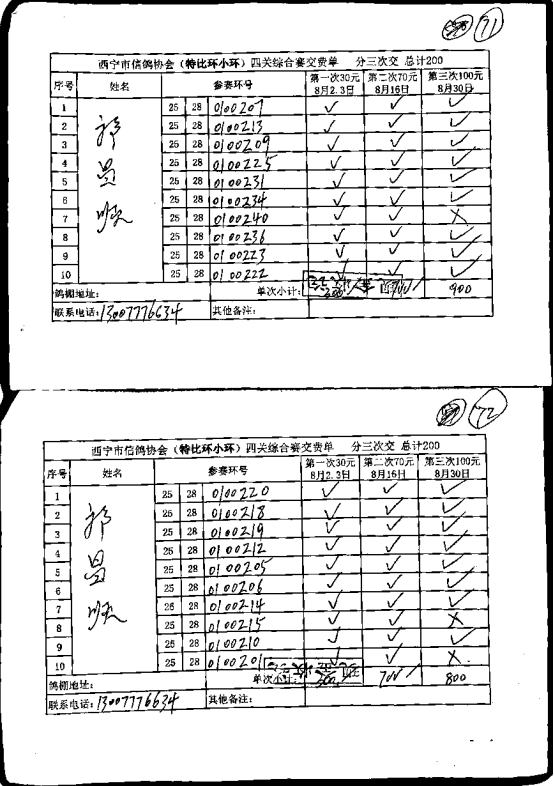 71
西宁市信鸽协会（特比环小环）四关综合赛交费单 分三次交 总计200
序号 姓名 参赛环号 第一次30元 8月2.3日 第二次70元 8月16日 第三次100元 8月30日
1 25 28 0100207 ✓ ✓ ✓
2 25 28 0100213 ✓ ✓ ✓
3 25 28 0100209 ✓ ✓ ✓
4 25 28 0100225 ✓ ✓ ✓
5 25 28 0100231 ✓ ✓ ✓
6 25 28 0100234 ✓ ✓ ✓
7 25 28 0100240 ✓ ✓ ✗
8 25 28 0100236 ✓ ✓ ✓
9 25 28 0100223 ✓ ✓ ✓
10 25 28 0100222 ✓ ✓ ✓
鸽棚地址： 单次小计： 300 700 900
联系电话：13007776634 其他备注：
72
西宁市信鸽协会（特比环小环）四关综合赛交费单 分三次交 总计200
序号 姓名 参赛环号 第一次30元 8月2.3日 第二次70元 8月16日 第三次100元 8月30日
1 25 28 0100220 ✓ ✓ ✓
2 25 28 0100218 ✓ ✓ ✓
3 25 28 0100219 ✓ ✓ ✓
4 25 28 0100212 ✓ ✓ ✓
5 25 28 0100205 ✓ ✓ ✓
6 25 28 0100206 ✓ ✓ ✓
7 25 28 0100214 ✓ ✓ ✓
8 25 28 0100215 ✓ ✓ ✗
9 25 28 0100210 ✓ ✓ ✓
10 25 28 0100201 ✓ ✓ ✗
鸽棚地址： 单次小计： 300 700 800
联系电话：13007776634 其他备注：